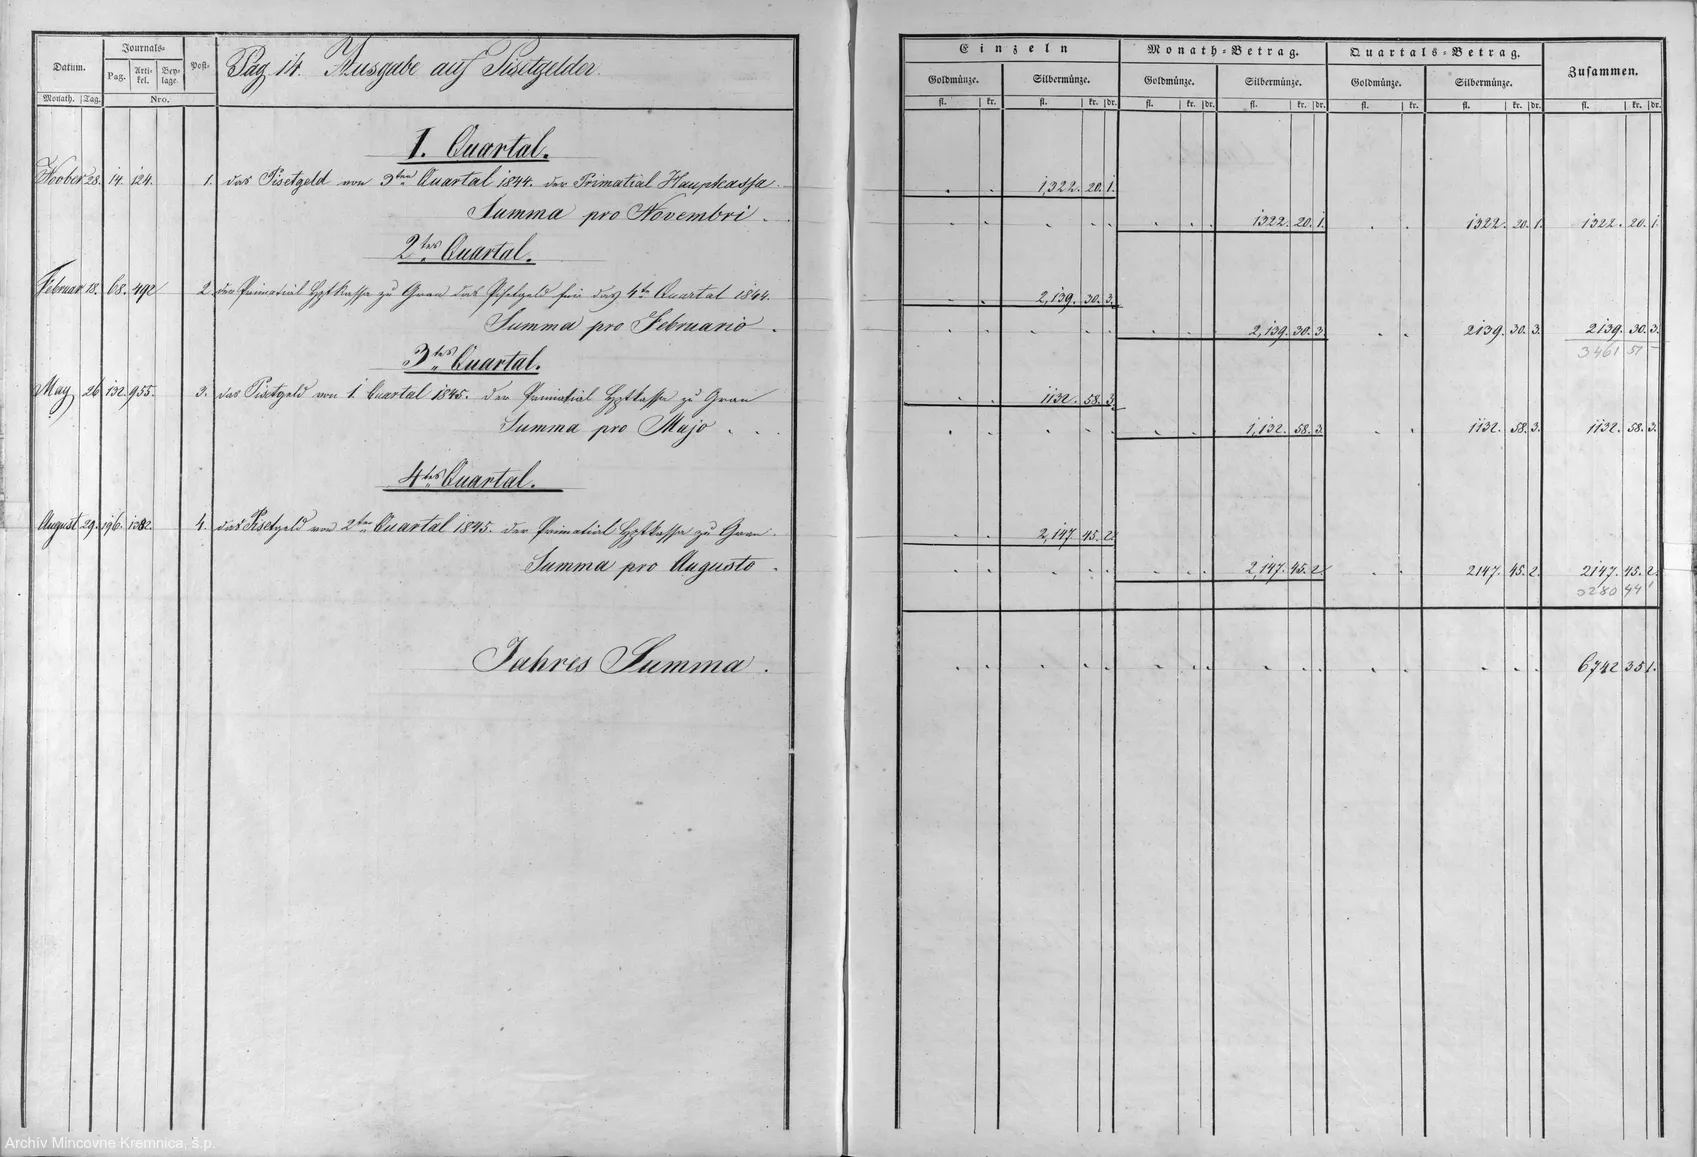 Datum.
Journals-
Pag.
Arti-
kel.
Bey-
lage.
Post-
Monath.
Tag.
Nro.
Pag. 14. Ausgabe auf Pisetgelder.
1. Quartal.
Novber 28. 14. 124. 1. das Pisetgeld von 3ten Quartal 1844. der Primatial Hauptcassa.
Summa pro Novembri.
2tes Quartal.
Februar 18. 68. 492 2 der Primatial Hptkassa zu Gran das Pisetgeld für das 4te Quartal 1844.
Summa pro Februario.
3tes Quartal.
May 26 132. 955. 3. das Pisetgeld von 1. Quartal 1845. der Primatial Hptkassa zu Gran
Summa pro Majo.
4tes Quartal.
August 29. 196. 1382. 4. das Pisetgeld von 2ten Quartal 1845. der Primatial Hptkassa zu Gran.
Summa pro Augusto.
Jahres Summa.
Einzeln
Monath-Betrag.
Quartals-Betrag.
Zusammen.
Goldmünze.
Silbermünze.
Goldmünze.
Silbermünze.
Goldmünze.
Silbermünze.
fl. kr. fl. kr. dr. fl. kr. dr. fl. kr. dr. fl. kr. fl. kr. dr. fl. kr. dr.
1322. 20. 1.
1322. 20. 1. 1322. 20. 1. 1322. 20. 1.
2,139. 30. 3.
2,139. 30. 3. 2139. 30. 3. 2139. 30. 3.
3461 51 -
1132. 58. 3.
1,132. 58. 3. 1132. 58. 3. 1132. 58. 3.
2,147. 45. 2
2,147. 45. 2. 2147. 45. 2. 2147. 45. 2.
3280 44 1
6742 35 1.
Archív Mincovne Kremnica, š.p.